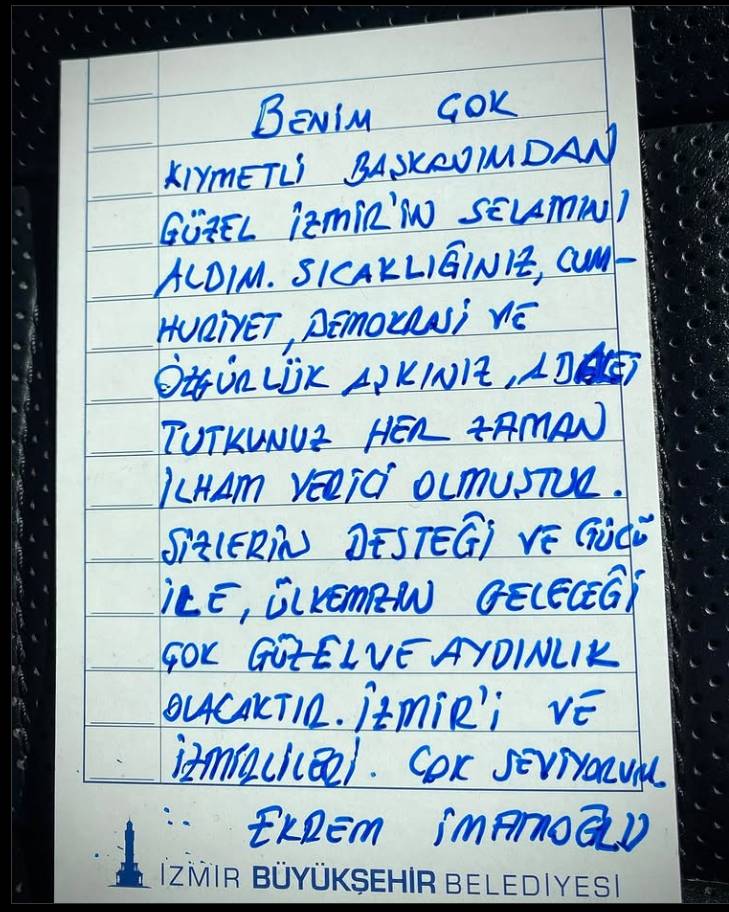 BENİM ÇOK
KIYMETLİ BAŞKANIMDAN
GÜZEL İZMİR'İN SELAMINI
ALDIM. SICAKLIĞINIZ, CUM-
HURİYET, DEMOKRASİ VE
ÖZGÜRLÜK AŞKINIZ, ADALET
TUTKUNUZ HER ZAMAN
İLHAM VERİCİ OLMUŞTUR.
SİZLERİN DESTEĞİ VE GÜCÜ
İLE, ÜLKEMİZİN GELECEĞİ
ÇOK GÜZEL VE AYDINLIK
OLACAKTIR. İZMİR'İ VE
İZMİRLİLERİ. ÇOK SEVİYORUM.
EKREM İMAMOĞLU
İZMİR BÜYÜKŞEHİR BELEDİYESİ